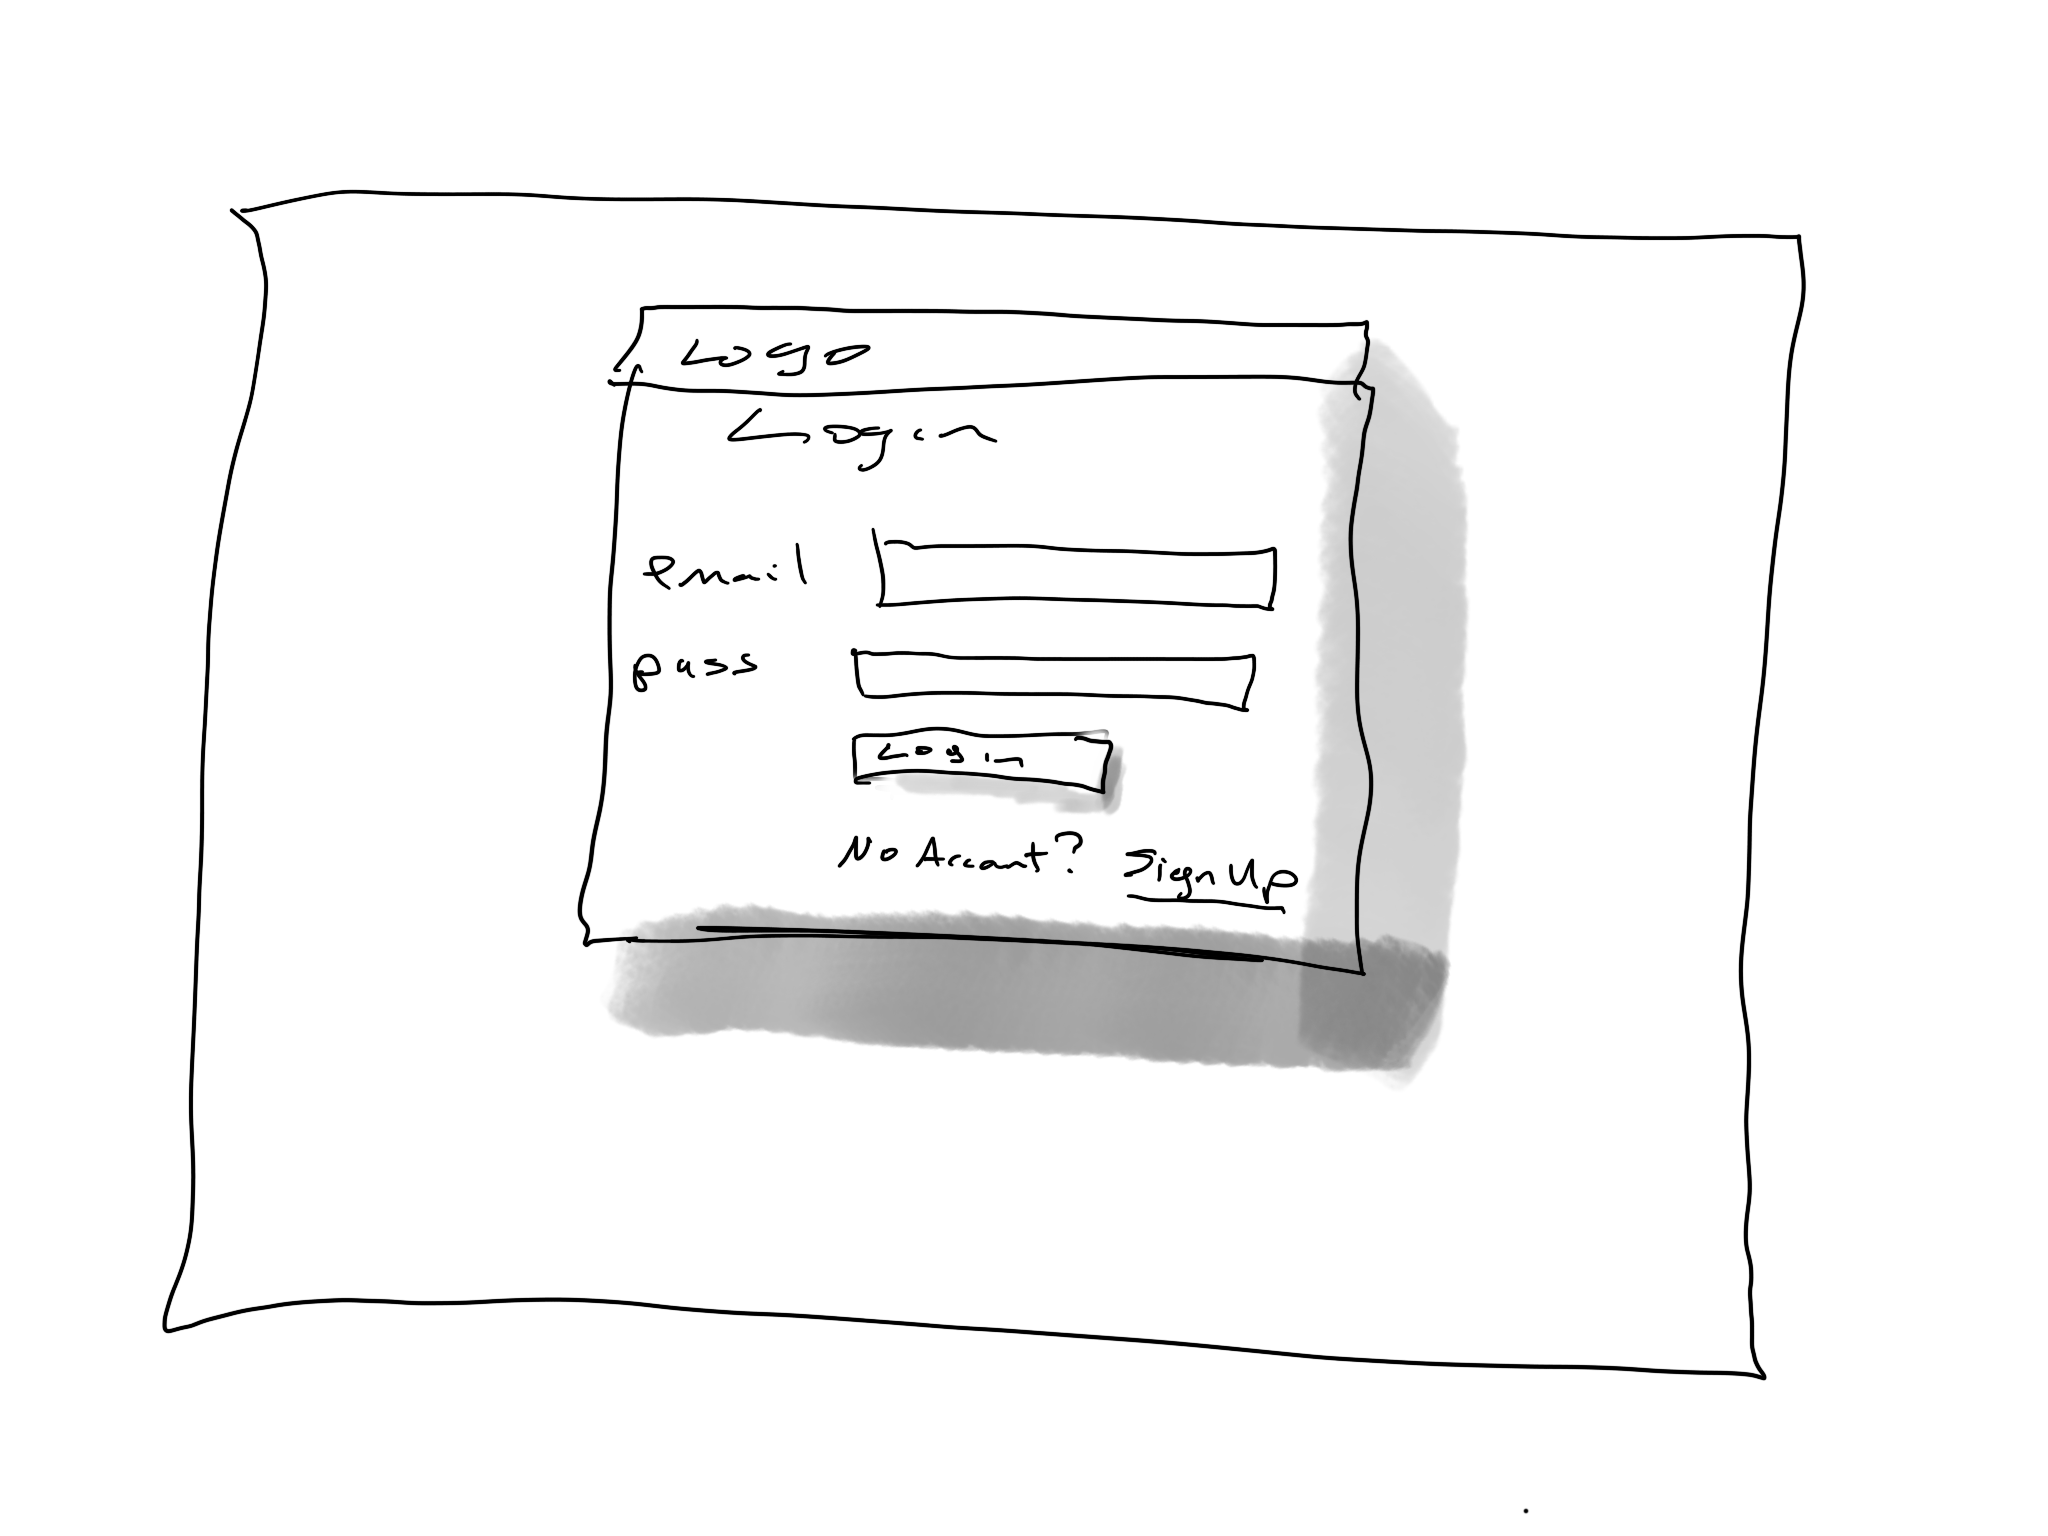 Logo
Login
email
pass
Login
No Account? Sign Up